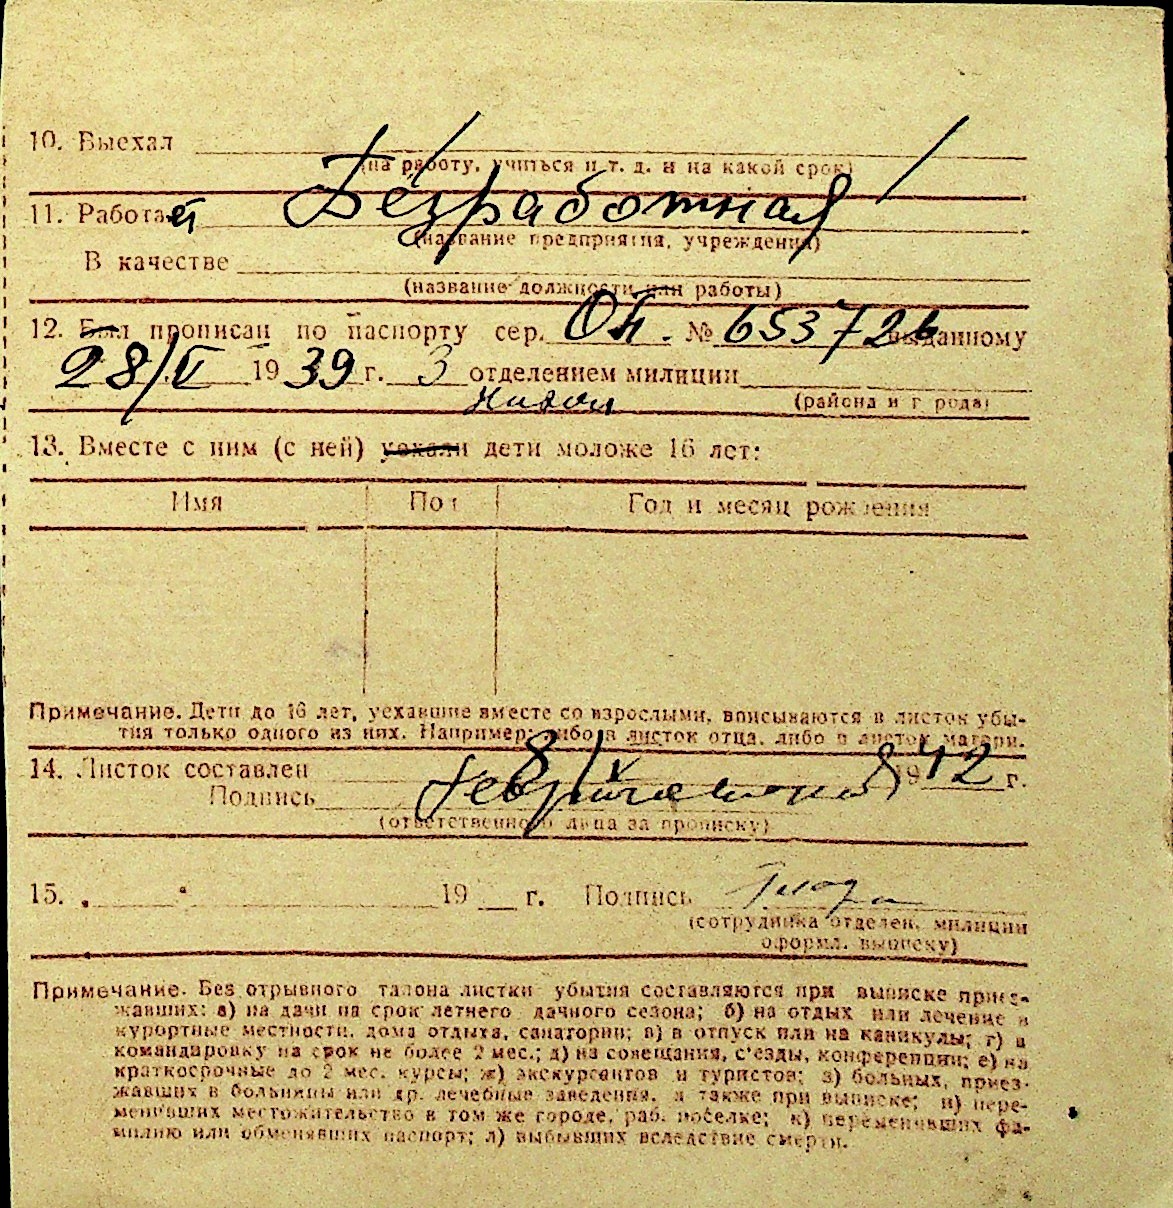 10. Выехал
(на работу, учиться и т. д. и на какой срок)
Безработная
11. Работает
(название предприятия, учреждения)
В качестве
(название должности или работы)
12. Был прописан по паспорту сер. ОП. № 653726 выданному
28/V 1939 г. 3 отделением милиции
(района и города)
13. Вместе с ним (с ней) уехали дети моложе 16 лет:
Имя Пол Год и месяц рождения
Примечание. Дети до 16 лет, уехавшие вместе со взрослыми, вписываются в листок убы-
тия только одного из них. Например: либо в листок отца, либо в листок матери.
14. Листок составлен 8/V 1942 г.
Подпись
(ответственного лица за прописку)
15. 19 г. Подпись
(сотрудника отделен. милиции
оформл. выписку)
Примечание. Без отрывного талона листки убытия составляются при выписке приез-
жавших: а) на дачи на срок летнего дачного сезона; б) на отдых или лечение в
курортные местности, дома отдыха, санатории; в) в отпуск или на каникулы; г) в
командировку на срок не более 2 мес.; д) на совещания, с'езды, конференции; е) на
краткосрочные до 2 мес. курсы; ж) экскурсантов и туристов; з) больных, приез-
жавших в больницы или др. лечебные заведения, а также при выписке; и) пере-
менивших местожительство в том же городе, раб. поселке; к) переменивших фа-
милию или обменявших паспорт; л) выбывших вследствие смерти.